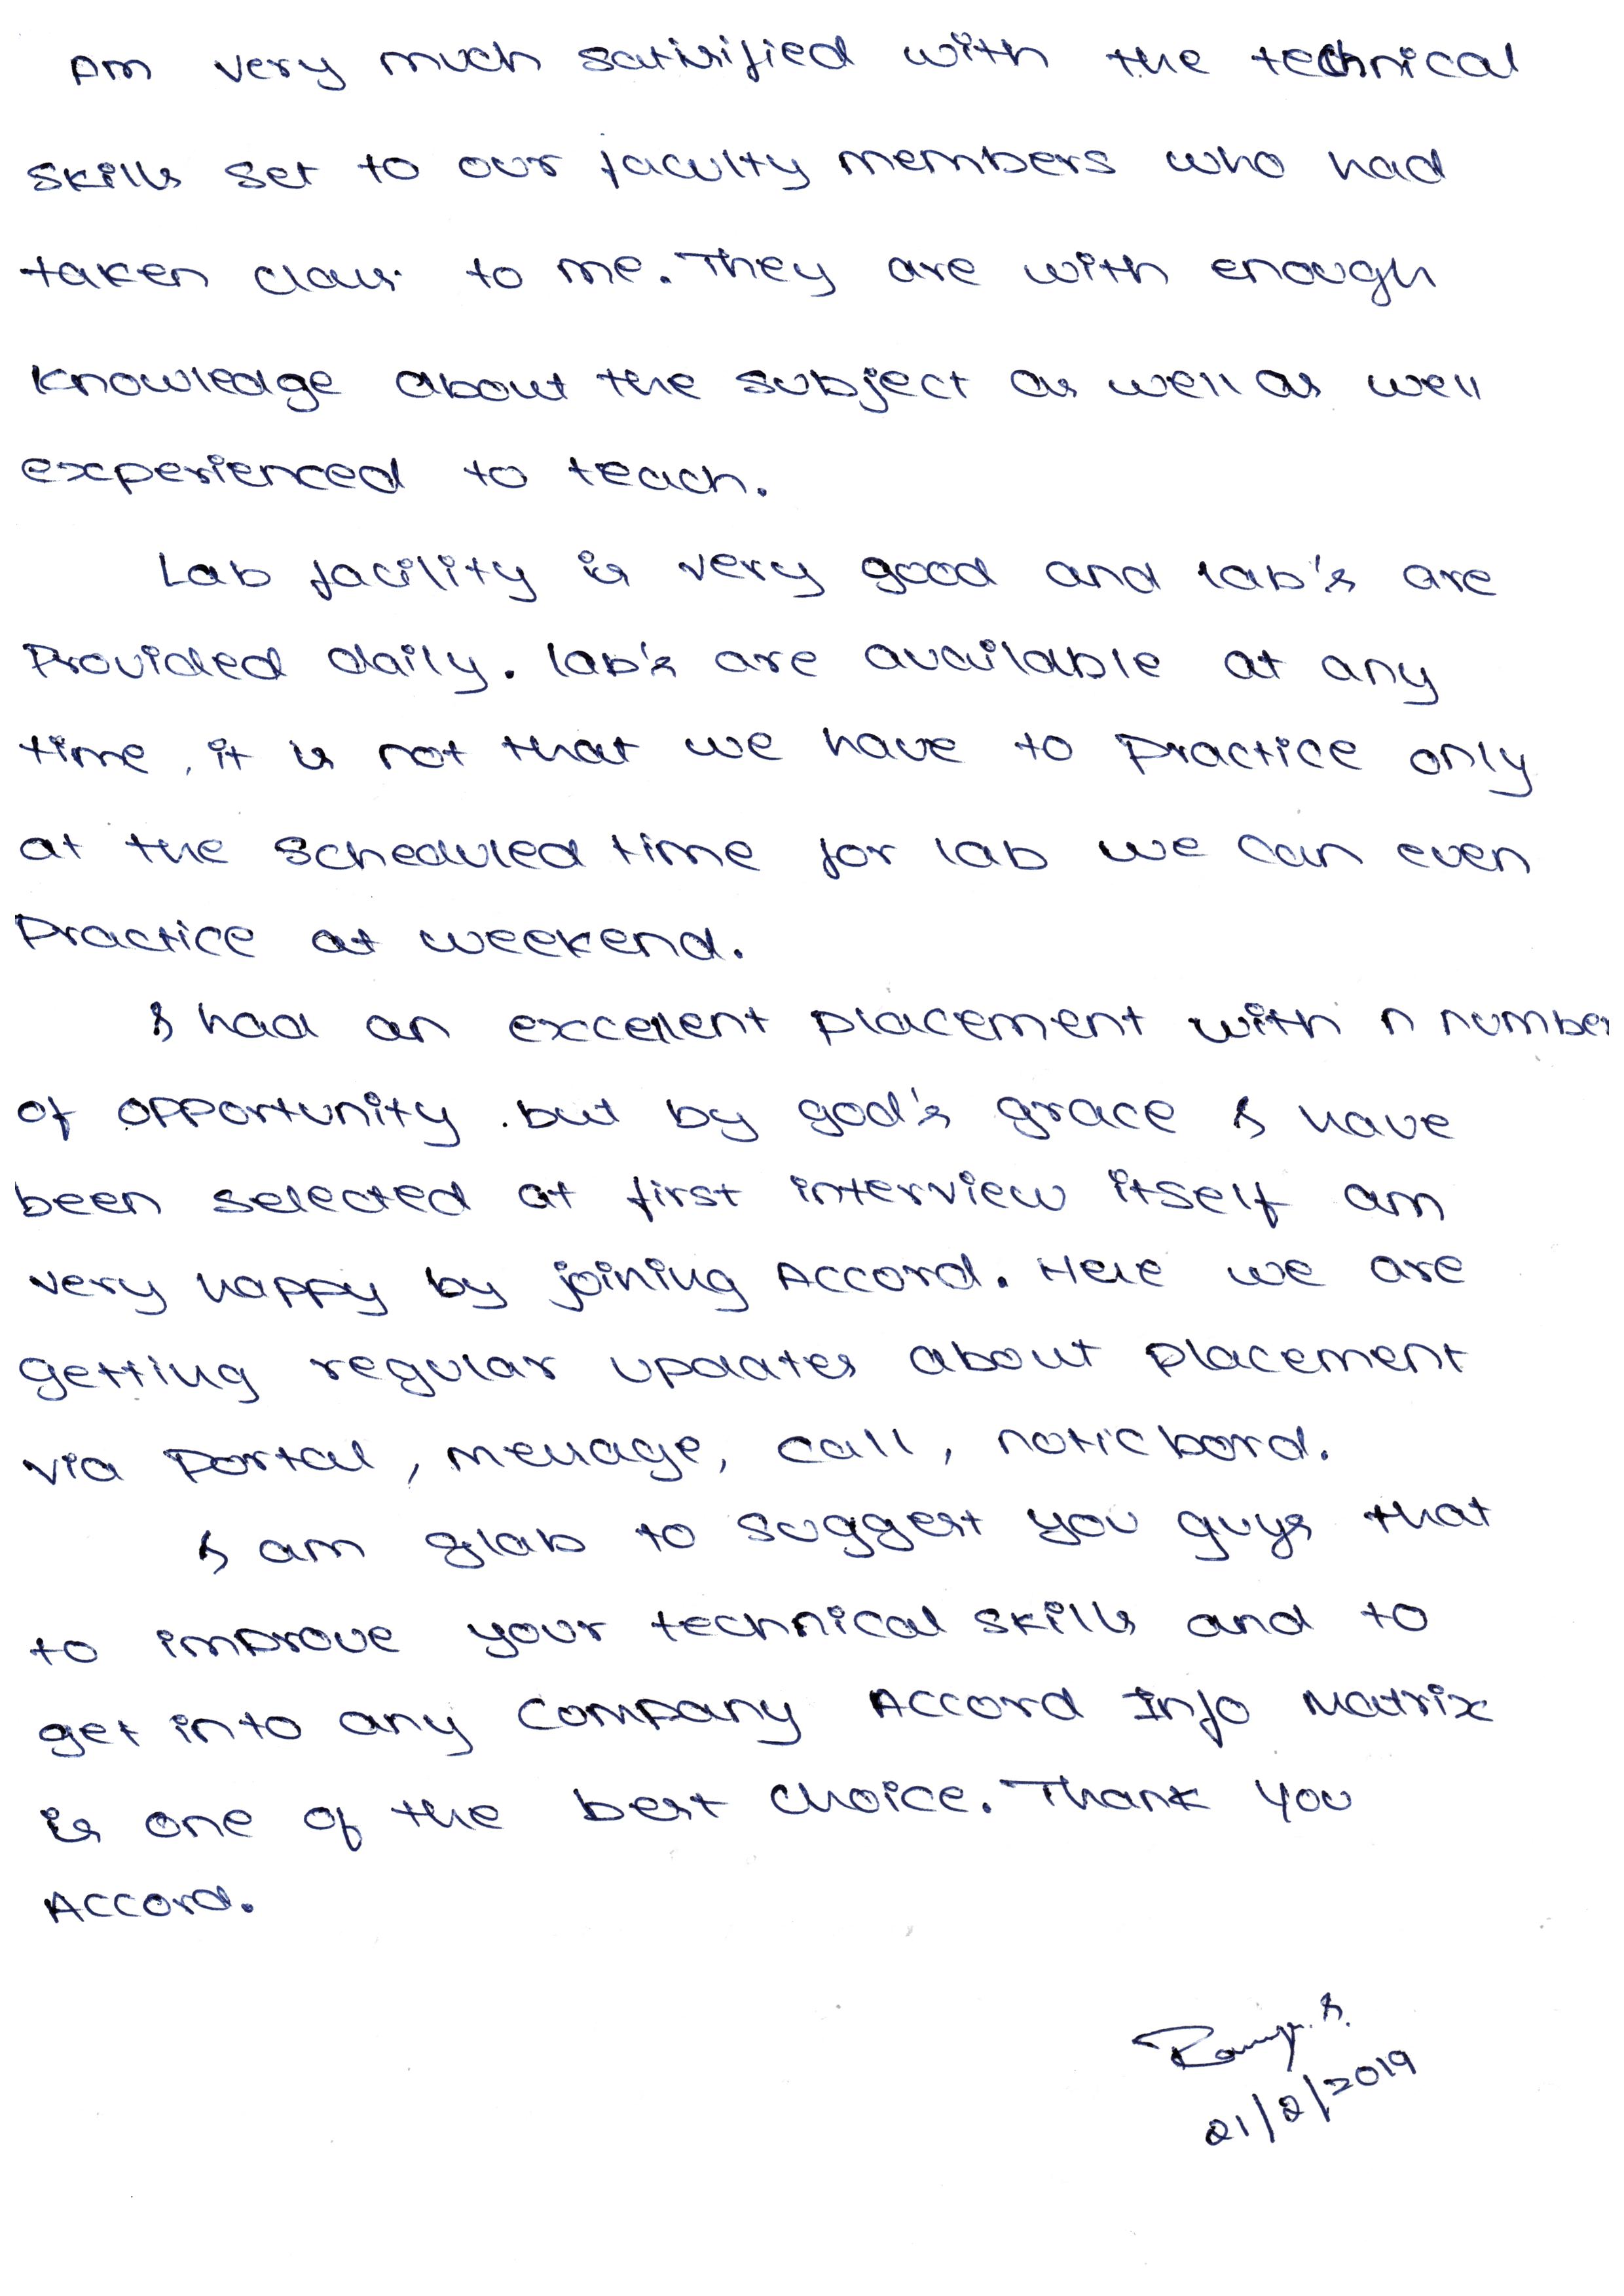 Am very much satisified with the technical
skills set to our faculty members who had
taken class to me. They are with enough
knowledge about the subject as well as well
experienced to teach.
Lab facility is very good and lab's are
Provided daily. lab's are available at any
time, it is not that we have to Practice only
at the scheduled time for lab we can even
Practice at weekend.
I had an excellent placement with n number
of opportunity. but by god's grace I have
been selected at first interview itself am
very happy by joining Accord. Here we are
getting regular updates about placement
via Portal, message, call, notic bord.
I am glab to suggest you guys that
to improve your technical skills and to
get into any Company Accord Info Matrix
is one of the best choice. Thank you
Accord.
21/2/2019